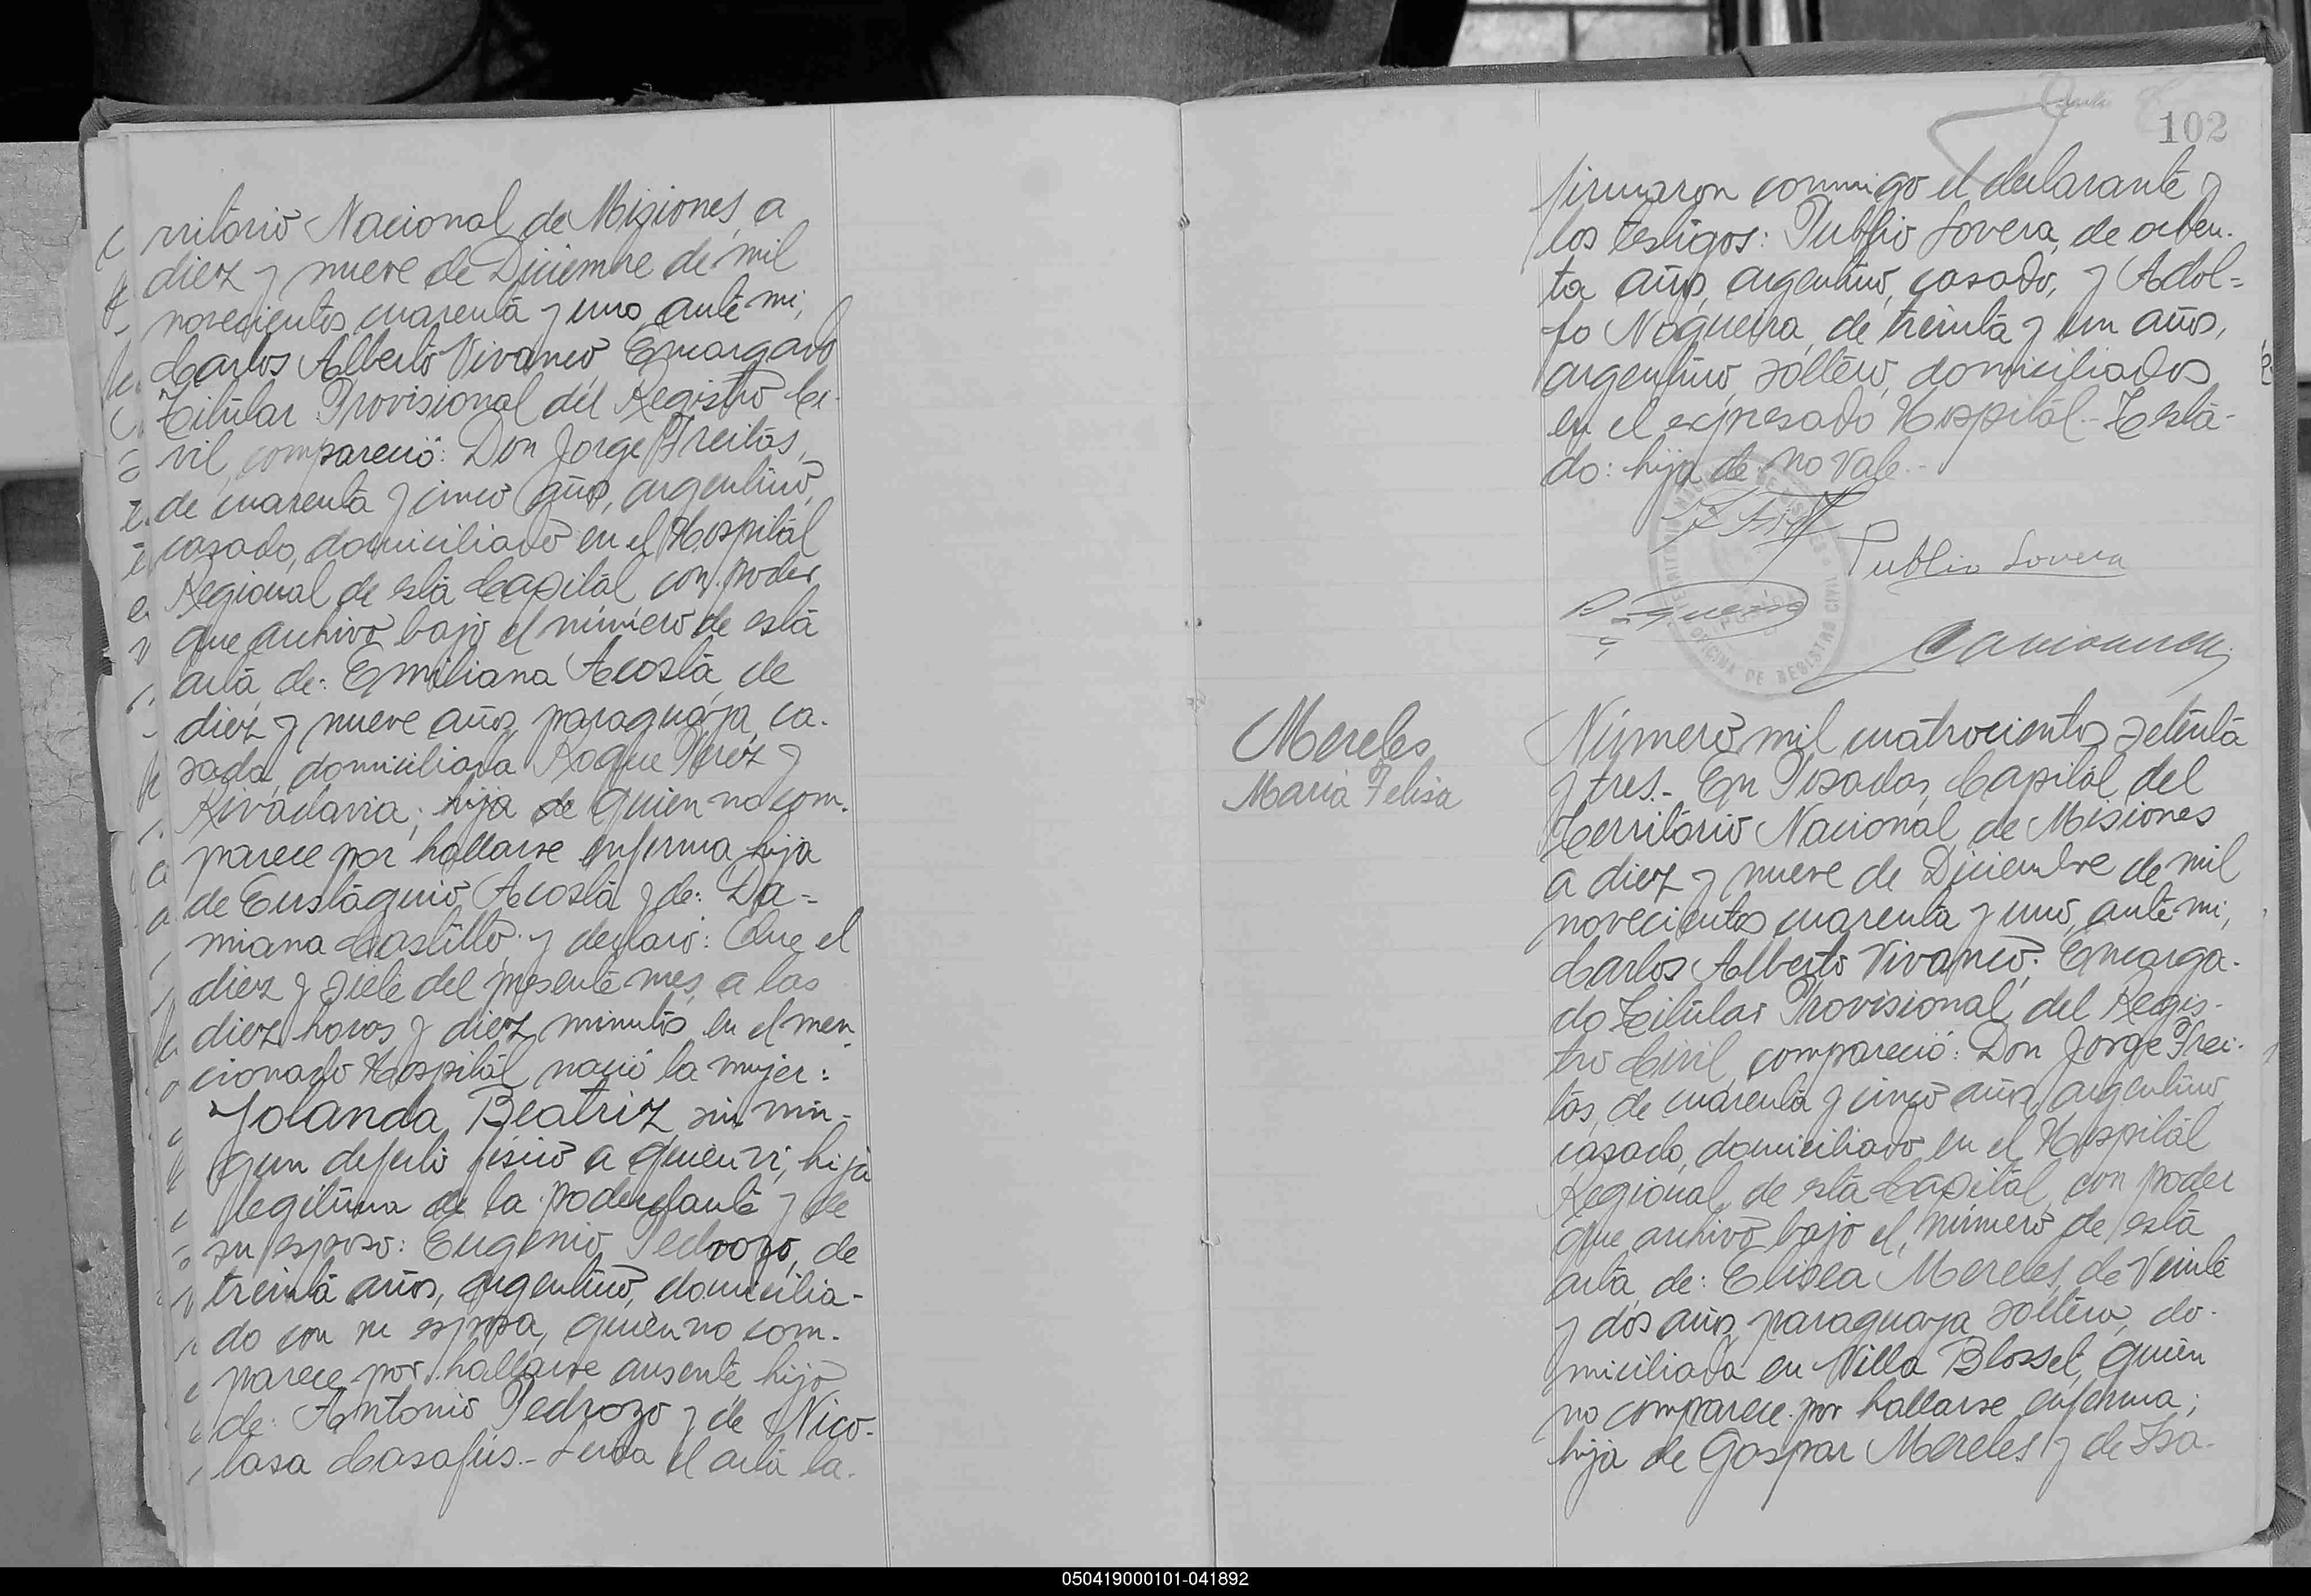 rritorio Nacional de Misiones, a
diez y nueve de Diciembre de mil
novecientos cuarenta y uno, ante mi,
Carlos Alberto Vivanco Encargado
Titular Provisional del Registro Ci-
vil, compareció: Don Jorge Freitas,
de cuarenta y cinco años, argentino,
casado, domiciliado en el Hospital
Regional de esta Capital con poder
que archivo bajo el número de esta
acta, de: Emiliana Acosta, de
diez y nueve años, paraguaya, ca-
sada, domiciliada Roque Perez y
Rivadavia; hija de quien no com-
parece por hallarse enferma hija
de Eustaquio Acosta y de: Da-
miana Castillo; y declaró: Que el
diez y siete del presente mes, a las
diez horas y diez minutos en el men-
cionado Hospital nació la mujer:
Yolanda Beatriz, sin nin-
gun defecto fisico a quien vi, hija
legitima de la poderdante y de
su esposo: Eugenio Pedrozo, de
treinta años, argentino, domicilia-
do con su esposa, quien no com-
parece por hallarse ausente, hijo
de: Antonio Pedrozo y de Nico-
lasa Casafús.- Leida el acta la
102
firmaron conmigo el declarante y
los testigos: Publio Lovera, de ochen-
ta años, argentino, casado, y Adol-
fo Nogueira, de treinta y un años,
argentino, soltero, domiciliados
en el expresado Hospital.- Testa-
do: hija de: no Vale.-
Publio Lovera
OFICINA DE REGISTRO CIVIL
Mereles
Maria Felisa
Número mil cuatrocientos setenta
y tres.- En Posadas, Capital del
Territorio Nacional de Misiones
a diez y nueve de Diciembre de mil
novecientos cuarenta y uno, ante mi,
Carlos Alberto Vivanco, Encarga-
do Titular Provisional del Regis-
tro Civil, compareció: Don Jorge Frei-
tas, de cuarenta y cinco años, argentino
casado, domiciliado en el Hospital
Regional de esta Capital, con poder
que archivo bajo el número de esta
acta, de: Elisea Mereles, de Veinte
y dos años, paraguaya soltera, do-
miciliada en Villa Blosset, quien
no comparece por hallarse enferma;
hija de Gaspar Mereles y de Isa-
050419000101-041892